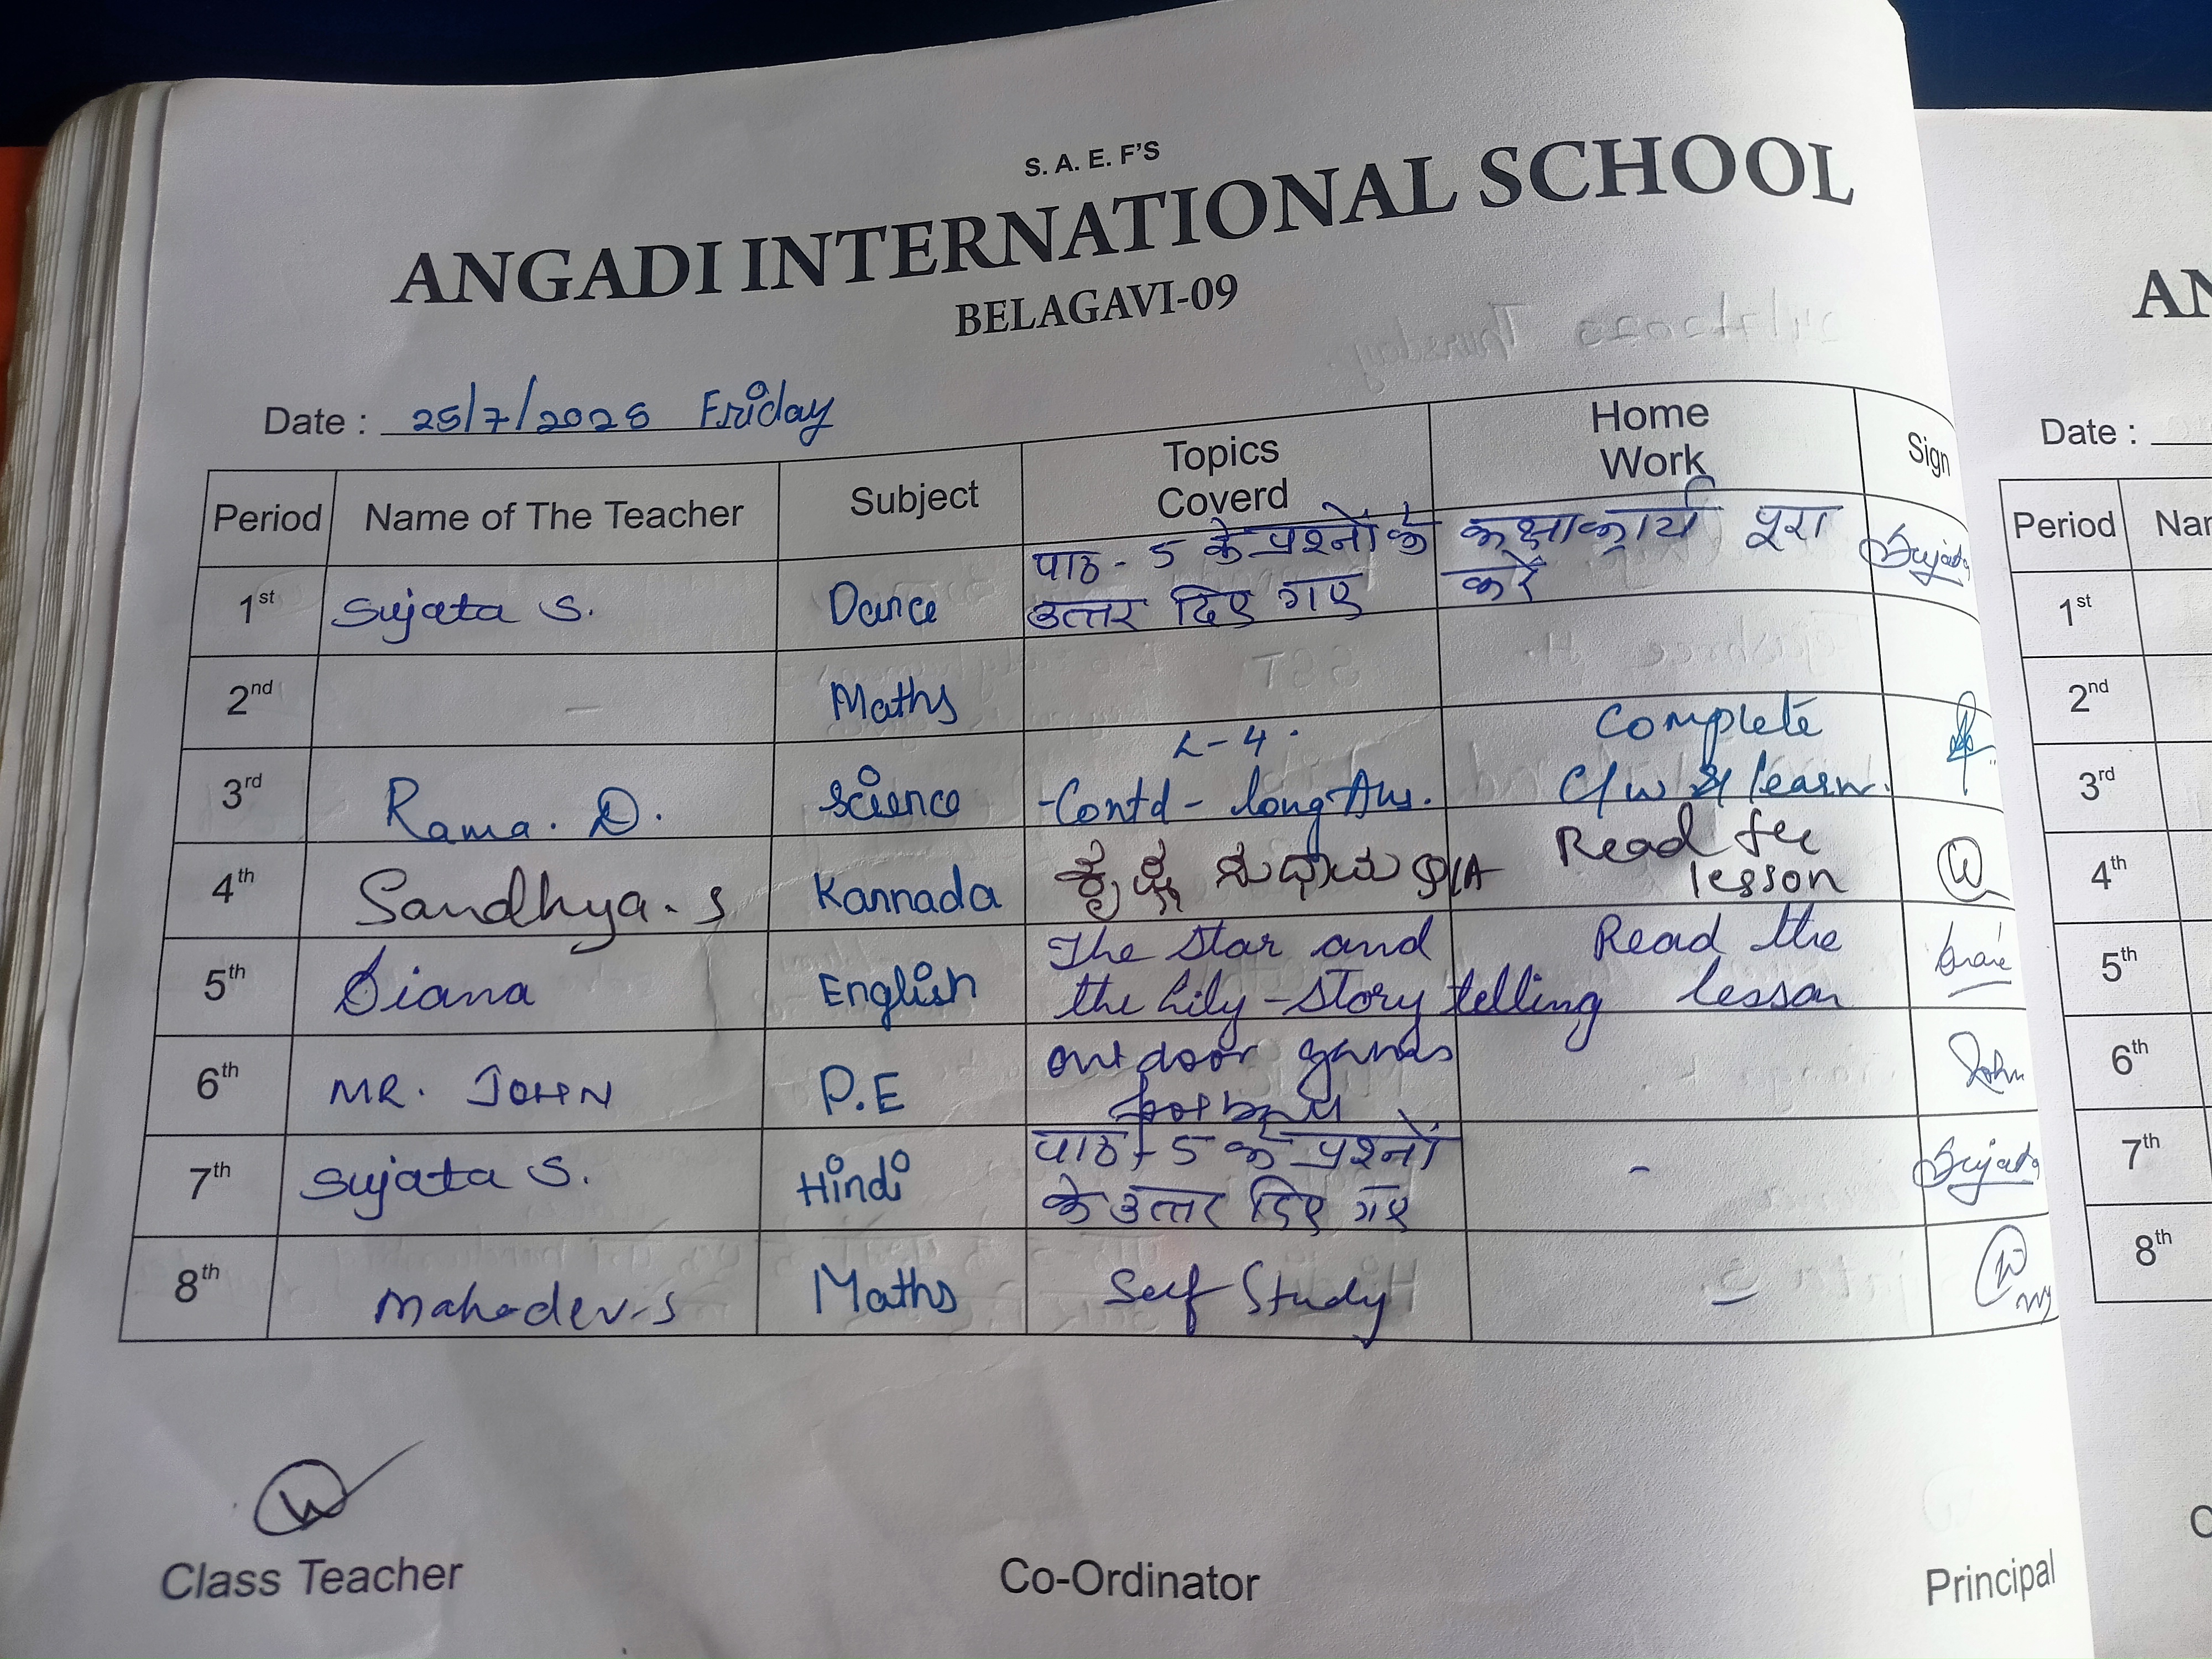 S. A. E. F'S
ANGADI INTERNATIONAL SCHOOL
BELAGAVI-09
Date : 25/7/2025 Friday
Period Name of The Teacher Subject Topics Coverd Home Work Sign
1st Sujata S. Dance पाठ - 5 के प्रश्नों के उत्तर दिए गए कक्षाकार्य पूरा करें Sujata
2nd - Maths
3rd Rama. D. Science L-4. -Contd- long Ans. Complete C/w & learn.
4th Sandhya. S Kannada Q/A Read the lesson
5th Diana English The Star and the Lily - Story telling Read the lesson
6th MR. JOHN P.E outdoor games John
7th Sujata S. Hindi पाठ - 5 के प्रश्नों के उत्तर दिए गए - Sujata
8th Mahadev.S Maths Self Study -
Class Teacher Co-Ordinator Principal
AN
Date :
Period Nar
1st
2nd
3rd
4th
5th
6th
7th
8th